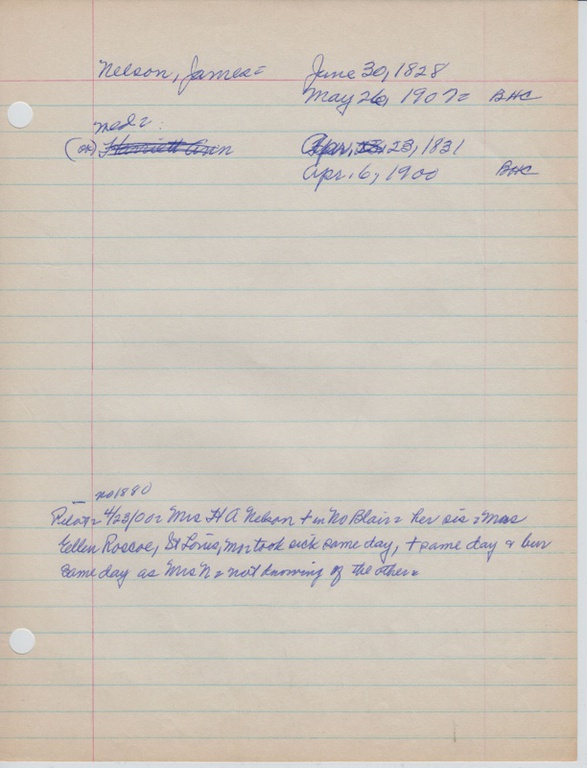 Nelson, James = June 30, 1828
May 26, 1907 = BHC
med = :
(ok) Harriett Ann Apr. 23, 1831
Apr. 6, 1900 BHC
no 1880
Pilot = 4/23/00 = Mrs H A Nelson + in No Blair = her sis = Mrs
Ellen Roscoe, St Louis, Mo = took sick same day, + same day & bur
same day as Mrs N = not knowing of the other =